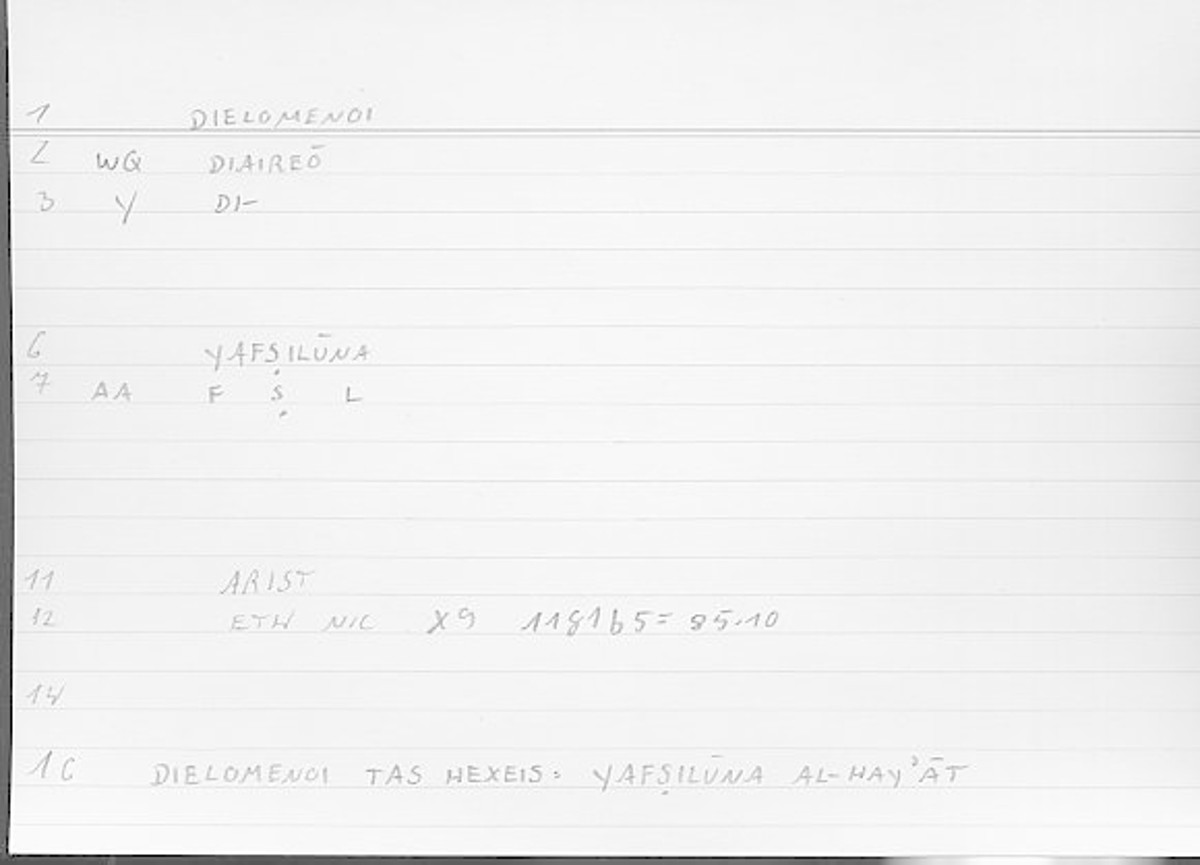 1 DIELOMENOI
2 WQ DIAIREŌ
3 Y DI-
6 YAFṢILŪNA
7 AA F Ṣ L
11 ARIST
12 ETH NIC X9 1181b5= 85.10
14
16 DIELOMENOI TAS HEXEIS: YAFṢILŪNA AL-HAYʾĀT